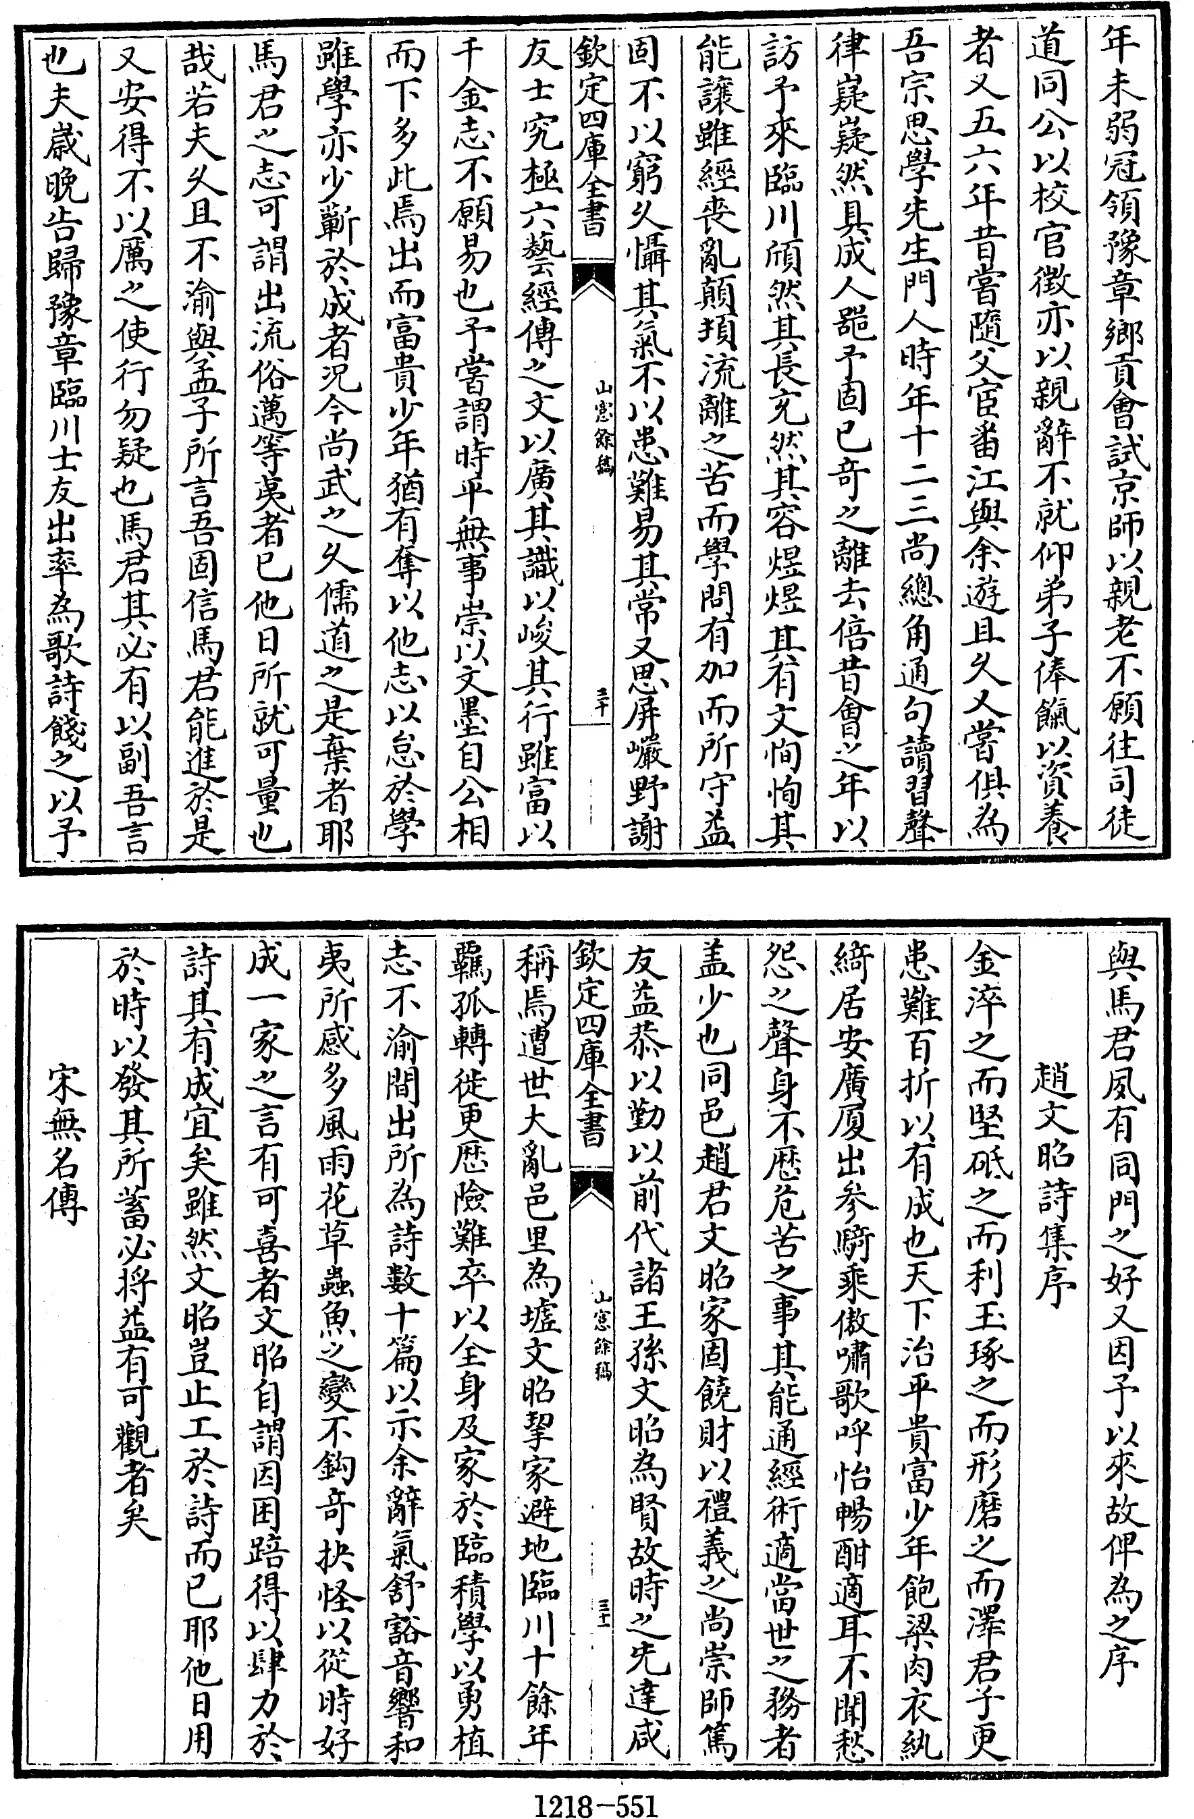 年未弱冠領豫章鄉貢會試京師以親老不願往司徒
道同公以校官徵亦以親辭不就仰弟子俸餼以資養
者又五六年昔嘗隨父宦番江與余遊且久又嘗俱為
吾宗思學先生門人時年十二三尚總角通句讀習聲
律嶷嶷然具成人器予固已奇之離去倍昔會之年以
訪予來臨川頎然其長充然其容煜煜其有文恂恂其
能讓雖經喪亂顛頓流離之苦而學問有加而所守益
固不以窮久懾其氣不以患難易其常又思屏巖野謝
欽定四庫全書
山窗餘稿
三十
友士究極六藝經傳之文以廣其識以峻其行雖富以
千金志不願易也予嘗謂時平無事崇以文墨自公相
而下多此焉出而富貴少年猶有奪以他志以怠於學
雖學亦少蘄於成者况今尚武之久儒道之是棄者耶
馬君之志可謂出流俗邁等夷者已他日所就可量也
哉若夫久且不渝與孟子所言吾固信馬君能進於是
又安得不以厲之使行勿疑也馬君其必有以副吾言
也夫歲晚告歸豫章臨川士友出率為歌詩餞之以予
與馬君夙有同門之好又因予以來故俾為之序
趙文昭詩集序
金淬之而堅砥之而利玉琢之而形磨之而澤君子更
患難百折以有成也天下治平貴富少年飽粱肉衣紈
綺居安廣厦出參騎乘傲嘯歌呼怡暢酣適耳不聞愁
怨之聲身不歷危苦之事其能通經術適當世之務者
盖少也同邑趙君文昭家固饒財以禮義之尚崇師篤
友益恭以勤以前代諸王孫文昭為賢故時之先達咸
欽定四庫全書
山窗餘稿
三十一
稱焉遭世大亂邑里為墟文昭挈家避地臨川十餘年
羈孤轉徙更歷險難卒以全身及家於臨積學以勇植
志不渝間出所為詩數十篇以示余辭氣舒谿音響和
夷所感多風雨花草蟲魚之變不鈎奇抉怪以從時好
成一家之言有可喜者文昭自謂因困踣得以肆力於
詩其有成宜矣雖然文昭豈止工於詩而已耶他日用
於時以發其所蓄必将益有可觀者矣
宋無名傳
1218-551